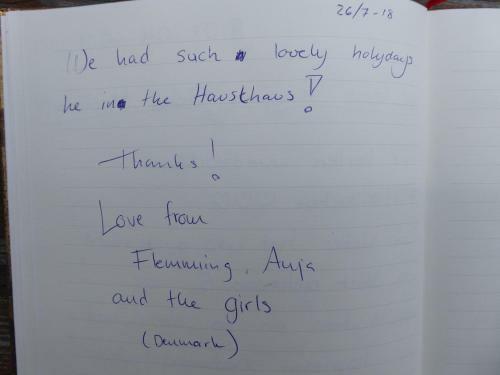 26/7-18
We had such lovely holydays
he in the Hausthaus!
Thanks!
Love from
Flemming, Anja
and the girls
(Denmark)